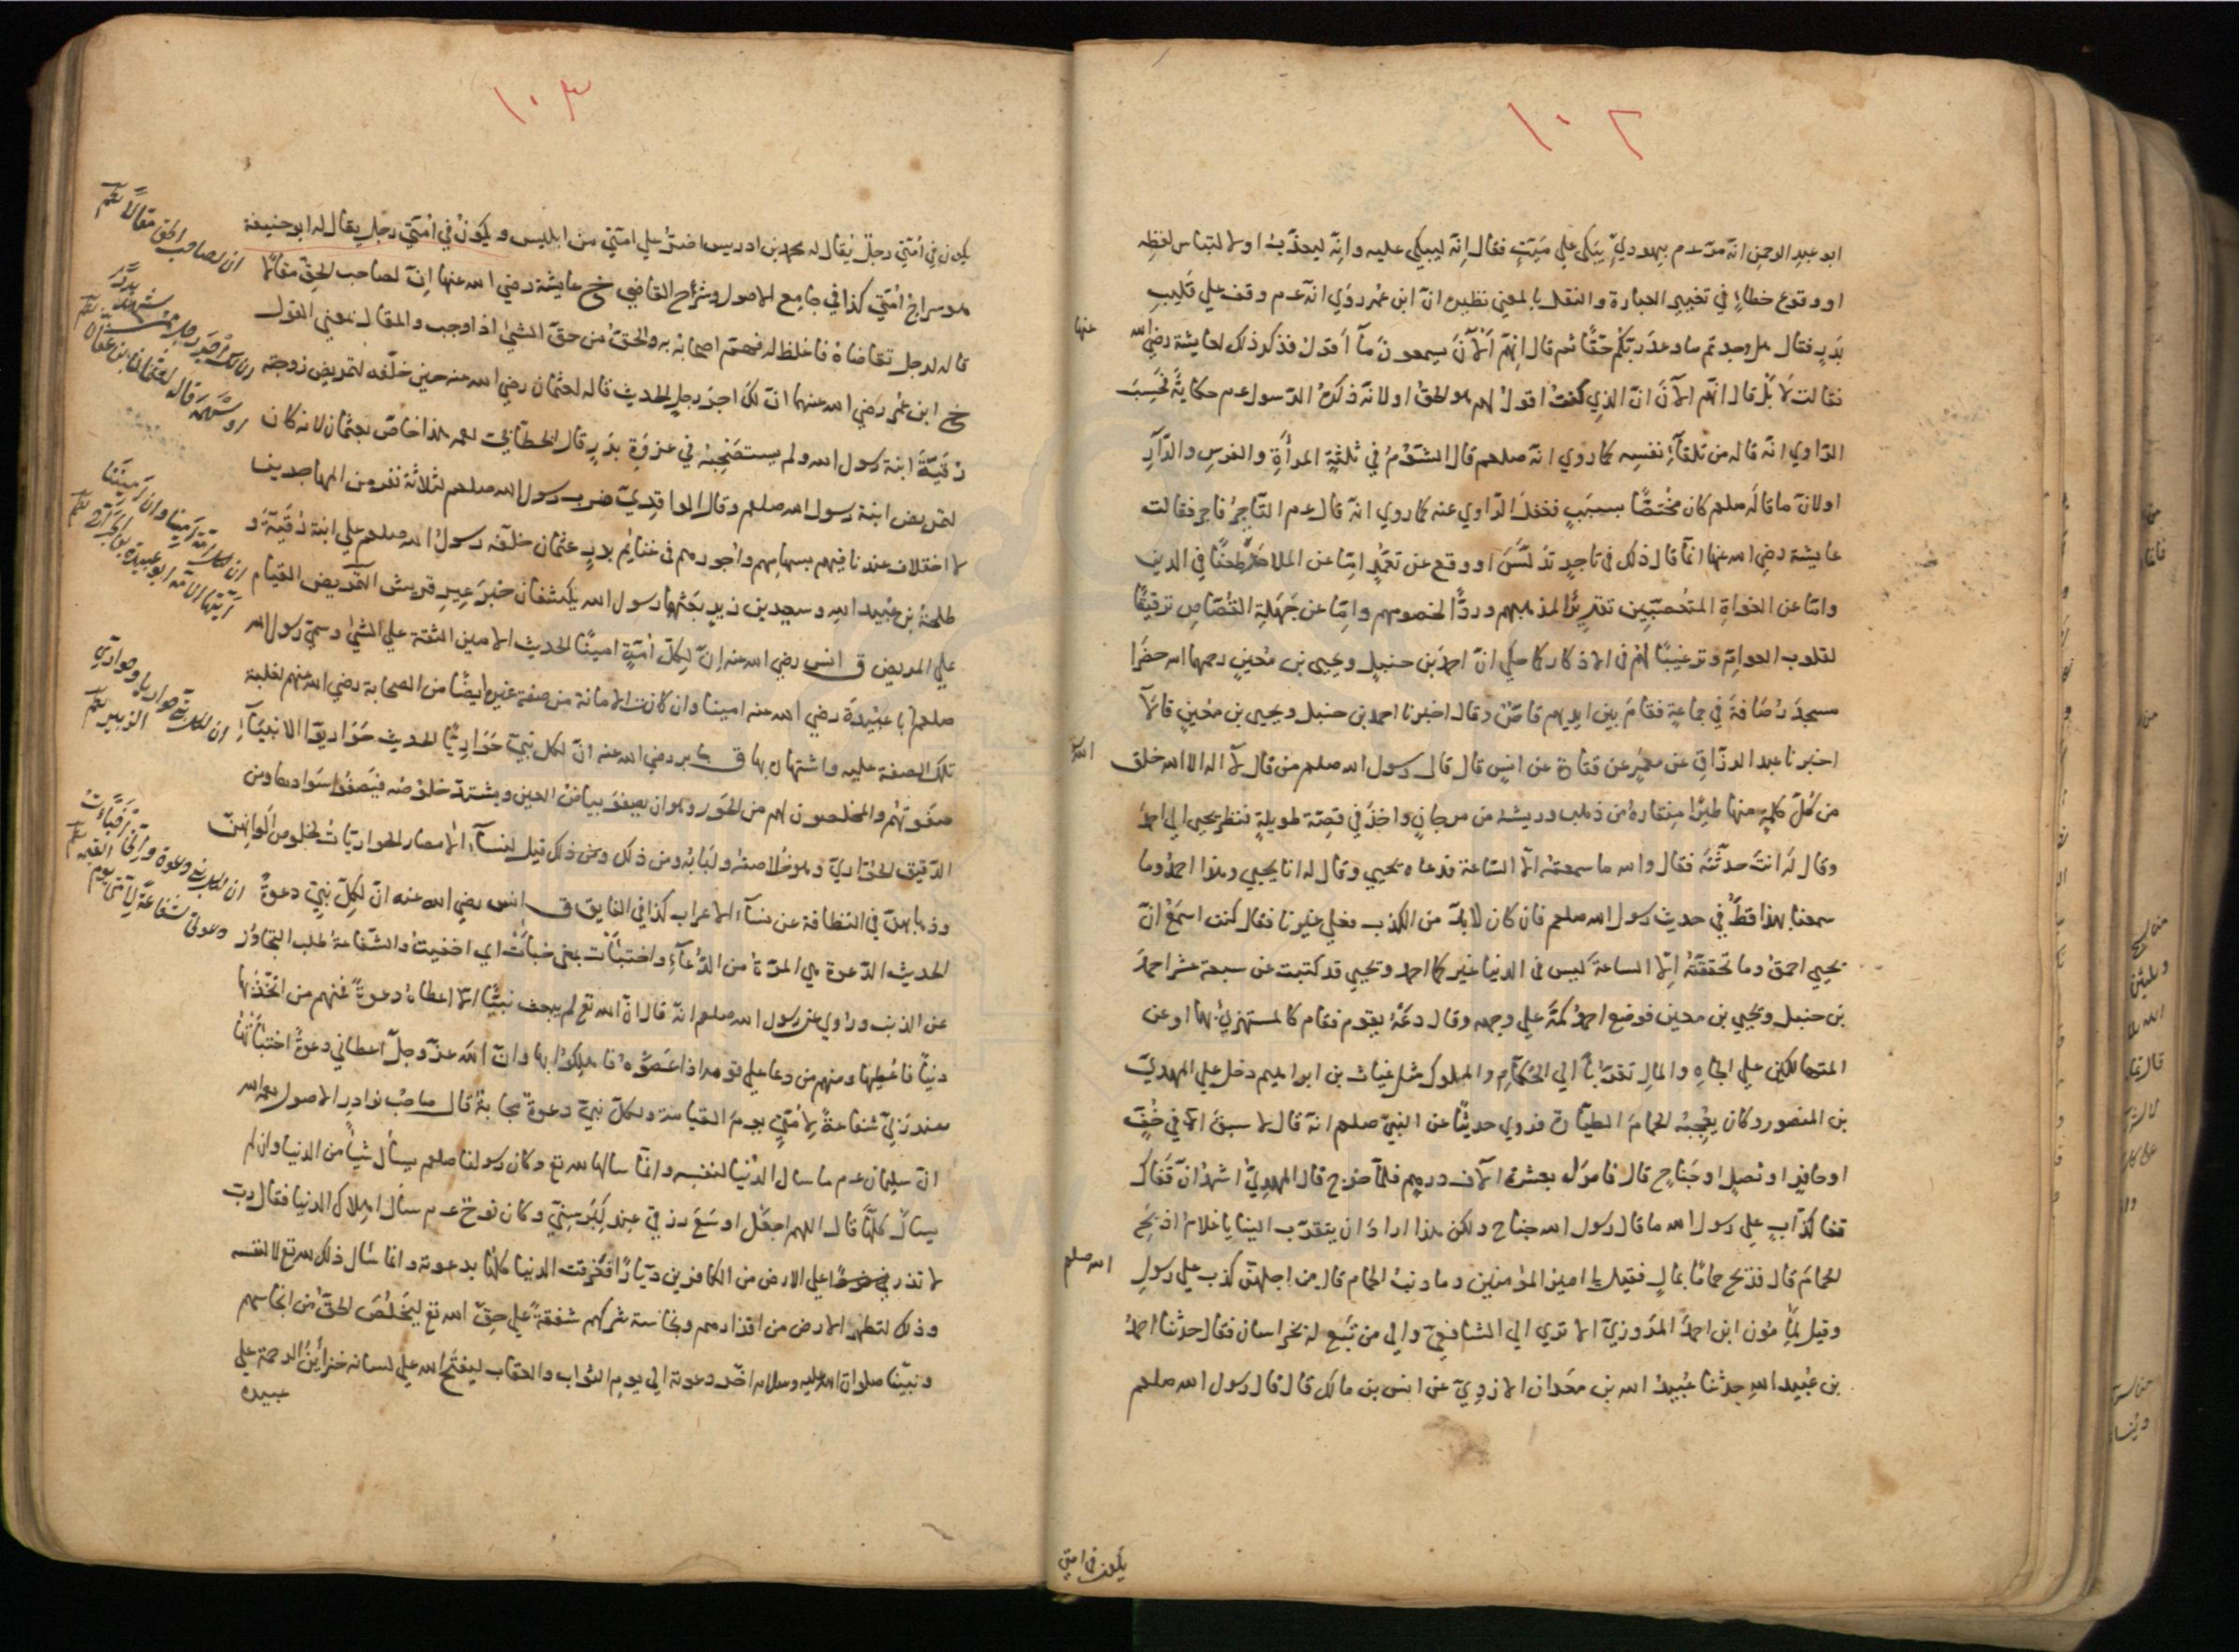 ١٠٢
ابو عبد الرحمن انّه مرّ عم بيهوديٍّ يبكى علي ميّتٍ فقال اِنّه ليبكي عليه وانّه ليعذّب او لالتباس لفظه
او وقوع خطاءٍ في تغيير العبارة والنقل بالمعني نظيره انّ ابن عمر روَي انّه عم وقف علي قليب
بدرٍ فقال هل وجدتم ما وعد ربّكم حقًّا ثم قال انهم اَلْآنَ يسمعونَ مآ اَقولُ فذكر ذلك لعايشة رضي الله
عنها
فقالت لَا بَلْ قال انّهم الآنَ انّ الذي كنتُ اقولُ لهم هو الحقُ او لانّه ذكرَ الرّسول عم حكايةً فحَسِبَ
الرّاوي انّه قاله من تلقآءِ نفسِه كما روي انّه صلعم قال الشّؤمُ في ثلثةٍ المرأةِ والفرسِ والدّآرِ
او لانّ ما قاله صلعم كان مختصًّا بسببٍ فغفلَ الرّاوي عنه كما روي انّه قال عم التّاجرُ فاجر فقالت
عايشة رضي الله عنها انّما قال ذلك في تاجرٍ تدلّسَ او وقع عن تعمّدٍ امّا عن الملاحدة طعنًا في الدين
وامّا عن الغواةِ المتعصّبين تقريرًا لمذهبهم وردًّا لخصومهم وامّا عن جَهَلةِ القُصّاصِ ترقيقًا
لقلوب العوامّ وترغيبًا لهم في الاذكار كما حكي انّ احمد بن حنبلٍ ويحيي بن مُعينٍ رحمهما الله حضَرا
مسجدَ رُصَافةَ في جماعةٍ فقامَ بين ايديهم قاصٌّ وقال اخبرنا احمد بن حنبل ويحيي بن مُعينٍ قالا
اخبرنا عبد الرزّاقِ عن معمرٍ عن قتادة عن انسٍ قال قال رسول الله صلعم من قال لآ اله الا الله خلق
الله
من كلّ كلمةٍ منها طيرًا مِنقاره من ذهب وريشه من مرجانٍ واخذَ في قصّة طويلةٍ فنظر يحيي الي احمد
وقال لَه انتَ حدّثتَه فقال والله ما سمعتُه الّا السّاعة فدعاه يحيي وقال له انا يحيي وهذا احمدُ وما
سمعنا بهذا قطّ في حديث رسول الله صلعم فان كان لابدّ من الكذب فعلي غيرنا فقال كنت اسمعُ انّ
يحيي احمقُ وما تحقّقتُه اِلّا الساعةَ كيس في الدنيا غير كما احمد ويحيي قد كتبت عن سبعة عشر احمدَ
بن حنبل ويحيي بن معين فوضع احمدُ كمّه علي وجهه وقال دعْهُ يقوم فقام كالمستهزئِ بهما او عن
المتهالكين علي الجاهِ والمالِ تقرّبًا الي الحُكّامِ والملوك مثل غياث بن ابراهيم دخل علي المهديّ
بن المنصور وكان يُعجبُه الحمامَ الطيّارة فروي حديثًا عن النبيّ صلعم انّه قال لا سبق الّا في خُفٍّ
او حافرٍ او نصلٍ او جَناحٍ قال فامرَله بعشرة آلاف درهم فلمّا خرج قال المهديّ اشهدُ انّ قَفاكَ
قفا كذّابٍ علي رسول الله ما قال رسول الله جناح ولكن هذا ارادَ ان يتقرّب الينا يا غلامُ اذبَحْ
الحمامَ قال فذبح حمامًا بمالٍ فقيل يا امير المؤمنين وما ذنبُ الحمام قال من اجلهنّ كذب علي رسولِ
الله صلعم
وقيل لمأمون ابن احمد المَرْوزيّ الا تري الي الشافعيّ والي من تَبَع له بخراسان فقال حدثنا احمد
بن عُبيد الله حدثنا عُبيدُ الله بن معدان الازديّ عن انس بن مالك قال قال رسول الله صلعم
يكون في امتي
١٠٣
يكون في اُمّتي رجلٌ يُقال له محمد بن ادريس اضرّ علي امّتي من ابليس ويكونُ في اُمّتي رجل يقال له ابو حنيفة
هو سراج اُمّتي كذا في جامع الاصول وشرح القاضي خ عايشة رضي الله عنها اِنّ لصاحب الحقّ مقالًا
ان لصاحب الحق مقالًا
قاله لرجل تقاضاهُ فاغلظ له فهمّ اصحابُه به والحقّ من حقّ الشئ اذا وجب والمقال بمعني القول
خ ابن عمر رَضي الله عنهما انّ لكَ اجرَ رجلٍ الحديث قاله لعثمان رضي الله عنه حين خلّفه لتمريض زوجته
ان لك اجر رجل ممن شهد بدرًا
وسهمه قاله لعثمان بن عفان
رقيّةَ ابنة رسول الله ولم يستصحبْهُ في غزوةِ بدرٍ قال الخطّابي رحمه هذا خاصّ بعثمان لانه كان
لتمريض ابنة رسول الله صلعم وقال الواقديّ ضرب رسول الله صلعم لثلاثة نفر من المهاجرين
لا اختلاف عندنا فيهم بسهامهم واُجورهم في غنائم بدرٍ عثمان خلّفه رسولُ الله صلعم علي ابنة رُقيّةَ و
طلحةُ بن عُبيد الله وسعيد بن زيدٍ بعَثهما رسول الله يكشفان خبرَ عِيرِ قريش التّمريض القيام
علي المريض ق انس رضي الله عنه اِنّ لكلّ اُمّةٍ امينًا الحديث الامين الثقة علي الشئ وسمّي رسول الله
ان لكل امّة امينا وان اميننا
ايّتها الامّة ابو عبيدة بن الجرّاح
صلعم ابا عبيدة رضي الله عنه امينا وان كانت الامانة من صفة غيره ايضًا من الصحابة رضي الله عنهم لغلبة
تلك الصفة عليه واشتهاره بها ق جابر رضي الله عنه انّ لكل نبيّ حَوَاريًّا الحديث حَوَاريّوا الانبيآءِ
ان لكل نبيّ حواريا وحواريّي
الزبير
صفوتُهم والمخلصون لهم من الحَوَر وهو ان يصفوَ بياضُ العين ويشتدّ خلوصُه فيَصفُو سَوادها ومن
الدّقيق الحُوّاريّ وهو خُلاصتُه ولُبابُه ومن ذلك قيل لنسآء الامصار الحواريّات لخلوص الوانهنّ
وذهابهنّ في النظافة عن نسآء الاعراب كذا في الفايق ق انس رضي الله عنه انّ لكلّ نبيّ دعوةً
ان لكل نبيّ دعوة وانّي اختبأت
دعوتي شفاعة لامّتي يوم القيمة
الحديث الدّعوة هي المرّةُ من الدّعآءِ واختبأت بمعني خبأتُ اي اخفيتُ والشّفاعةُ طلب التجاوز
عن الذنب وروي عن رسول الله صلعم انّه قال انّ الله تع لم يبعث نبيًّا الّا اعطاهُ دعوةً فمنهم من اتخذَها
دنياً فاعطِيها ومنهم من دعا علي قومه اذا عصَوْهُ فاهلكوا بها وانّ الله عزّ وجلّ اعطاني دعوةً اختبأتُها
عند ربّي شفاعةً لاُمّتي يومَ القيامة ولكلّ نبيّ دعوةٌ مجابةٌ قال صاحبُ نوادر الاصول رحمه الله
انّ سليمان عم ما سال الدُّنيا لنفسه وانّما سالها لله تع وكان رسولنا صلعم يسأل شيأً من الدنيا وان لم
يسأل كلّها قال اللهم اجعَلْ اوسَعَ رزقي عند كِبَرِ سِنّي وكان نوحٌ عم سأل اهلاك الدنيا فقال ربّ
لا تذر علي الارض من الكافرين ديّارًا فغرقت الدنيا كلّها بدعوته وانما سَأل ذلك لله تع لا لنفسه
وذلك لتطهير الارض من اقذارهم ونجاسة شركهم شفقةً علي حقّ الله تع ليخلُصَ الحقُّ من انجاسهم
ونبيّنا صلوات الله عليه وسلامه اخّر دعوته الي يوم الثواب والعقاب ليفتَح الله علي لسانه خزائنُ الرحمة علي
عبيده